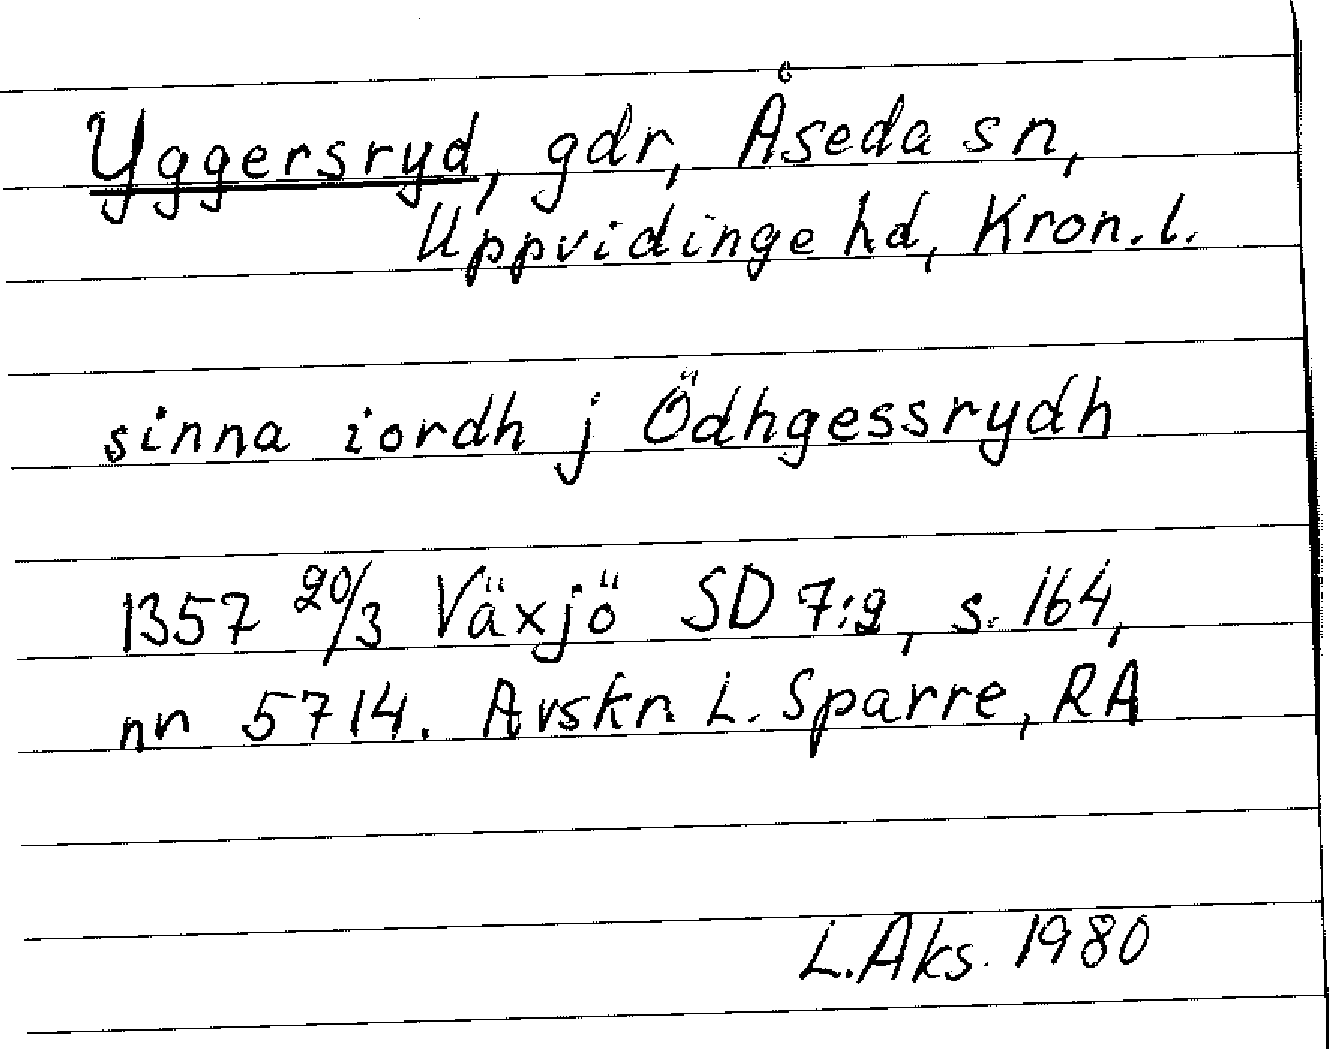 Yggersryd, gdr, Åseda sn,
Uppvidinge hd, Kron. l.
sinna iordh j Ödhgessrydh
1357 20/3 Växjö SD 7:2, s. 164,
nr 5714. Avskr. L. Sparre, RA
L. Aks. 1980